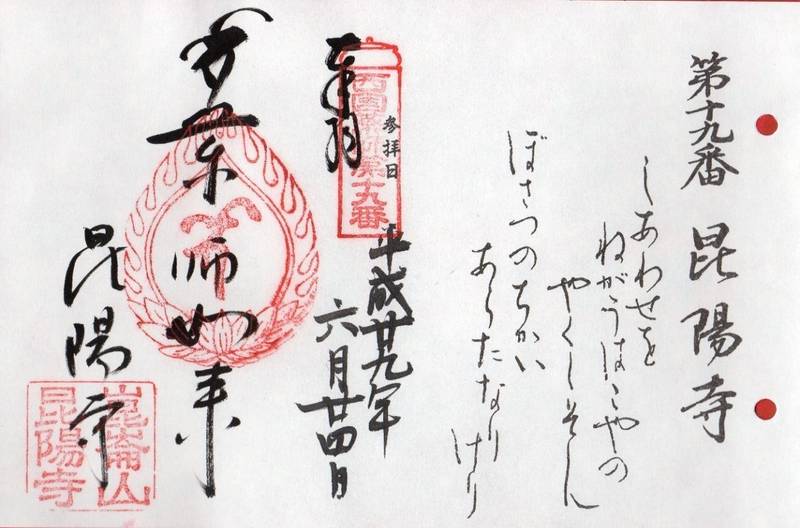 第十九番 昆陽寺
しあわせを
ねがうはこやの
やくしそん
ぼさつのちかい
あらたなり
けり
参拝日
平成廿九年
六月廿四月
奉拝
西国薬師第十九番
薬師如来
昆陽寺
崑崙山
昆陽寺